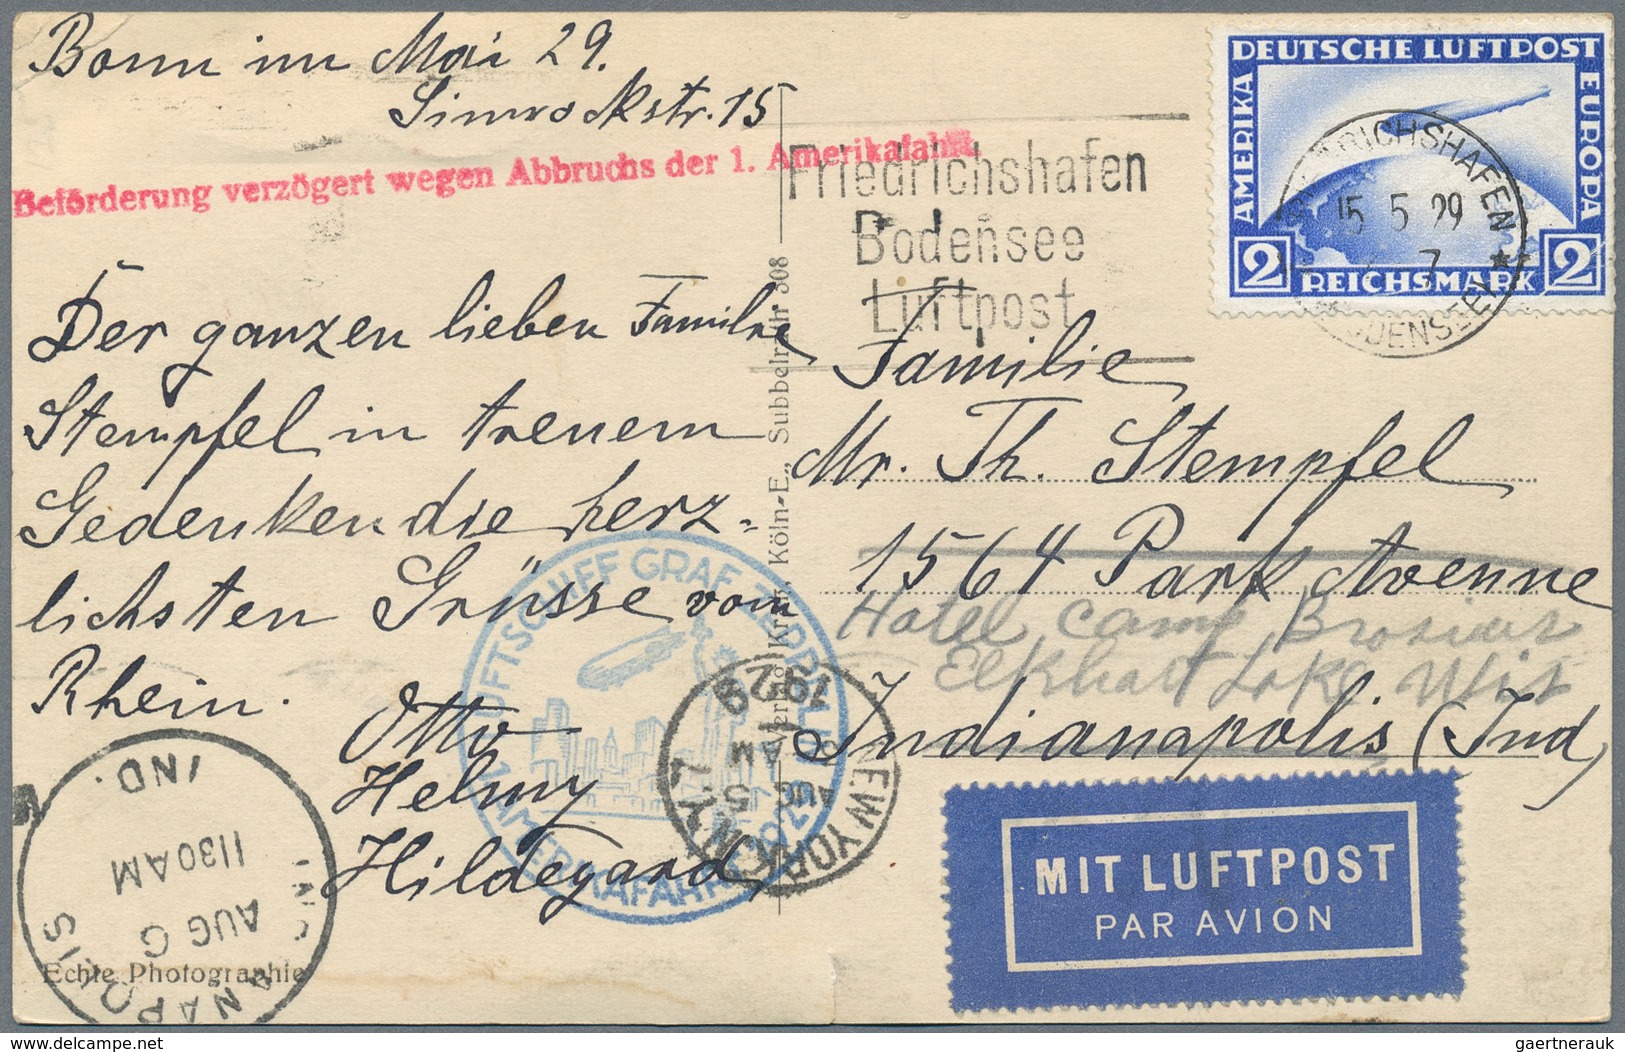 Bonn im Mai 29.
Simrockstr. 15
Beförderung verzögert wegen Abbruchs der 1. Amerikafahrt.
Der ganzen lieben Familie
Stempfel in treuem
Gedenken die herz-
lichsten Grüsse vom
Rhein.
Otto
Helmy
Hildegard
Echte Photographie
INDIANAPOLIS IND.
1130 AM
AUG
LUFTSCHIFF GRAF ZEPPELIN
1. AMERIKAFAHRT 1929
NEW YORK N.Y.
AUG
5 PM
1929
Köln-E., Subbelratherstr 308
Friedrichshafen
Bodensee
Luftpost
DEUTSCHE LUFTPOST
AMERIKA
EUROPA
2 REICHSMARK 2
FRIEDRICHSHAFEN
15 5 29
7
(BODENSEE)
Familie
Mr. Th. Stempfel
1564 Park Avenue
Hotel Camp Brosius
Elkhart Lake Wis
Indianapolis (Ind)
MIT LUFTPOST
PAR AVION
gaertnerauk